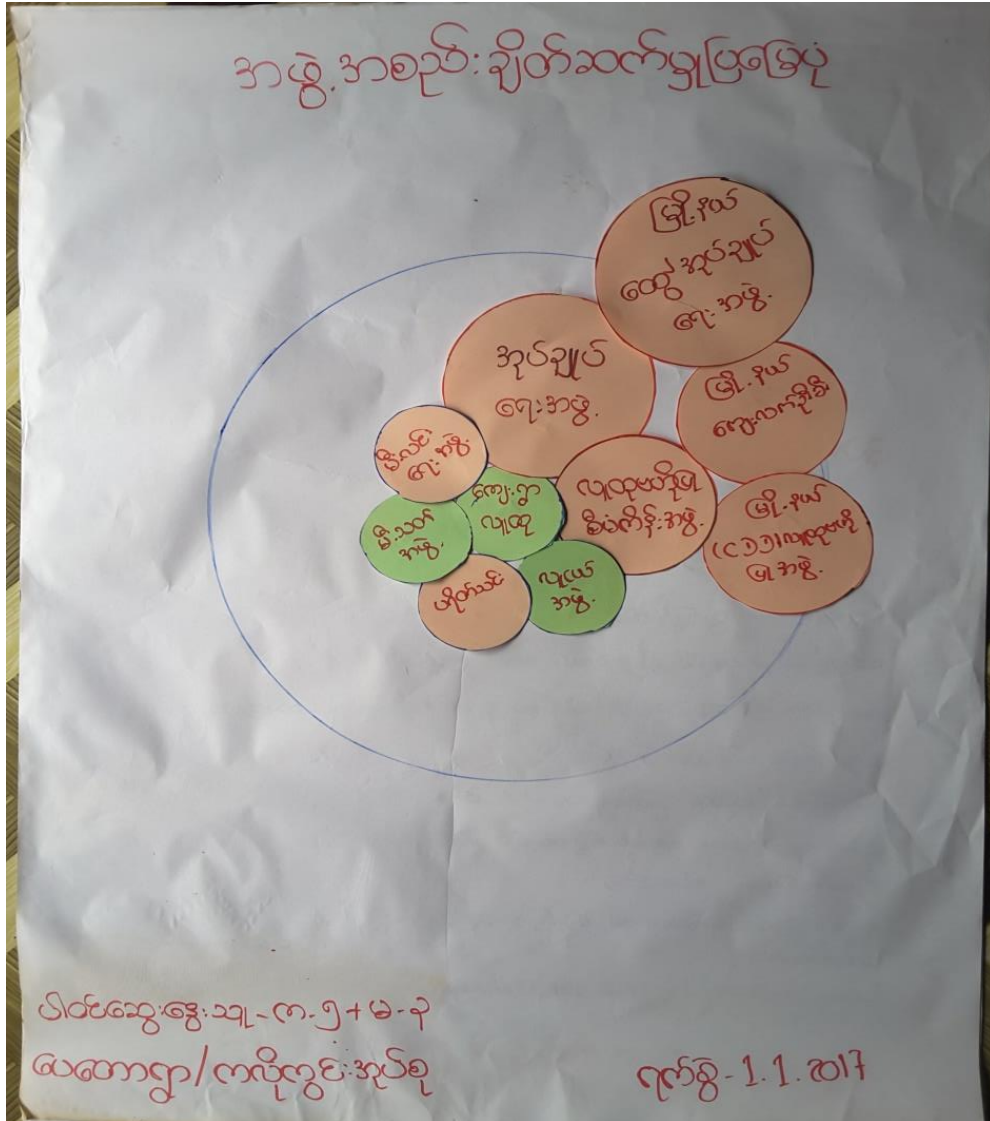 အဖွဲ့အစည်းချိတ်ဆက်မှုပြမြေပုံ
မြို့နယ်
ထွေအုပ်ချုပ်
ရေးအဖွဲ့
အုပ်ချုပ်
ရေးအဖွဲ့
မြို့နယ်
ကျေးလက်ဦးစီး
မီးလင်း
ရေးအဖွဲ့
ကျေးရွာ
လူထု
လူထုဗဟိုပြု
စီမံကိန်းအဖွဲ့
မြို့နယ်
(CDD)လူထုဗဟို
ပြုအဖွဲ့
မီးသတ်
အဖွဲ့
ပရိတ်သင်း
လူငယ်
အဖွဲ့
ပါဝင်ဆွေးနွေးသူ-ကျ-၅+မ-၃
ပေတောရွာ/ကလိုကွင်းအုပ်စု
ရက်စွဲ-1.1.2017